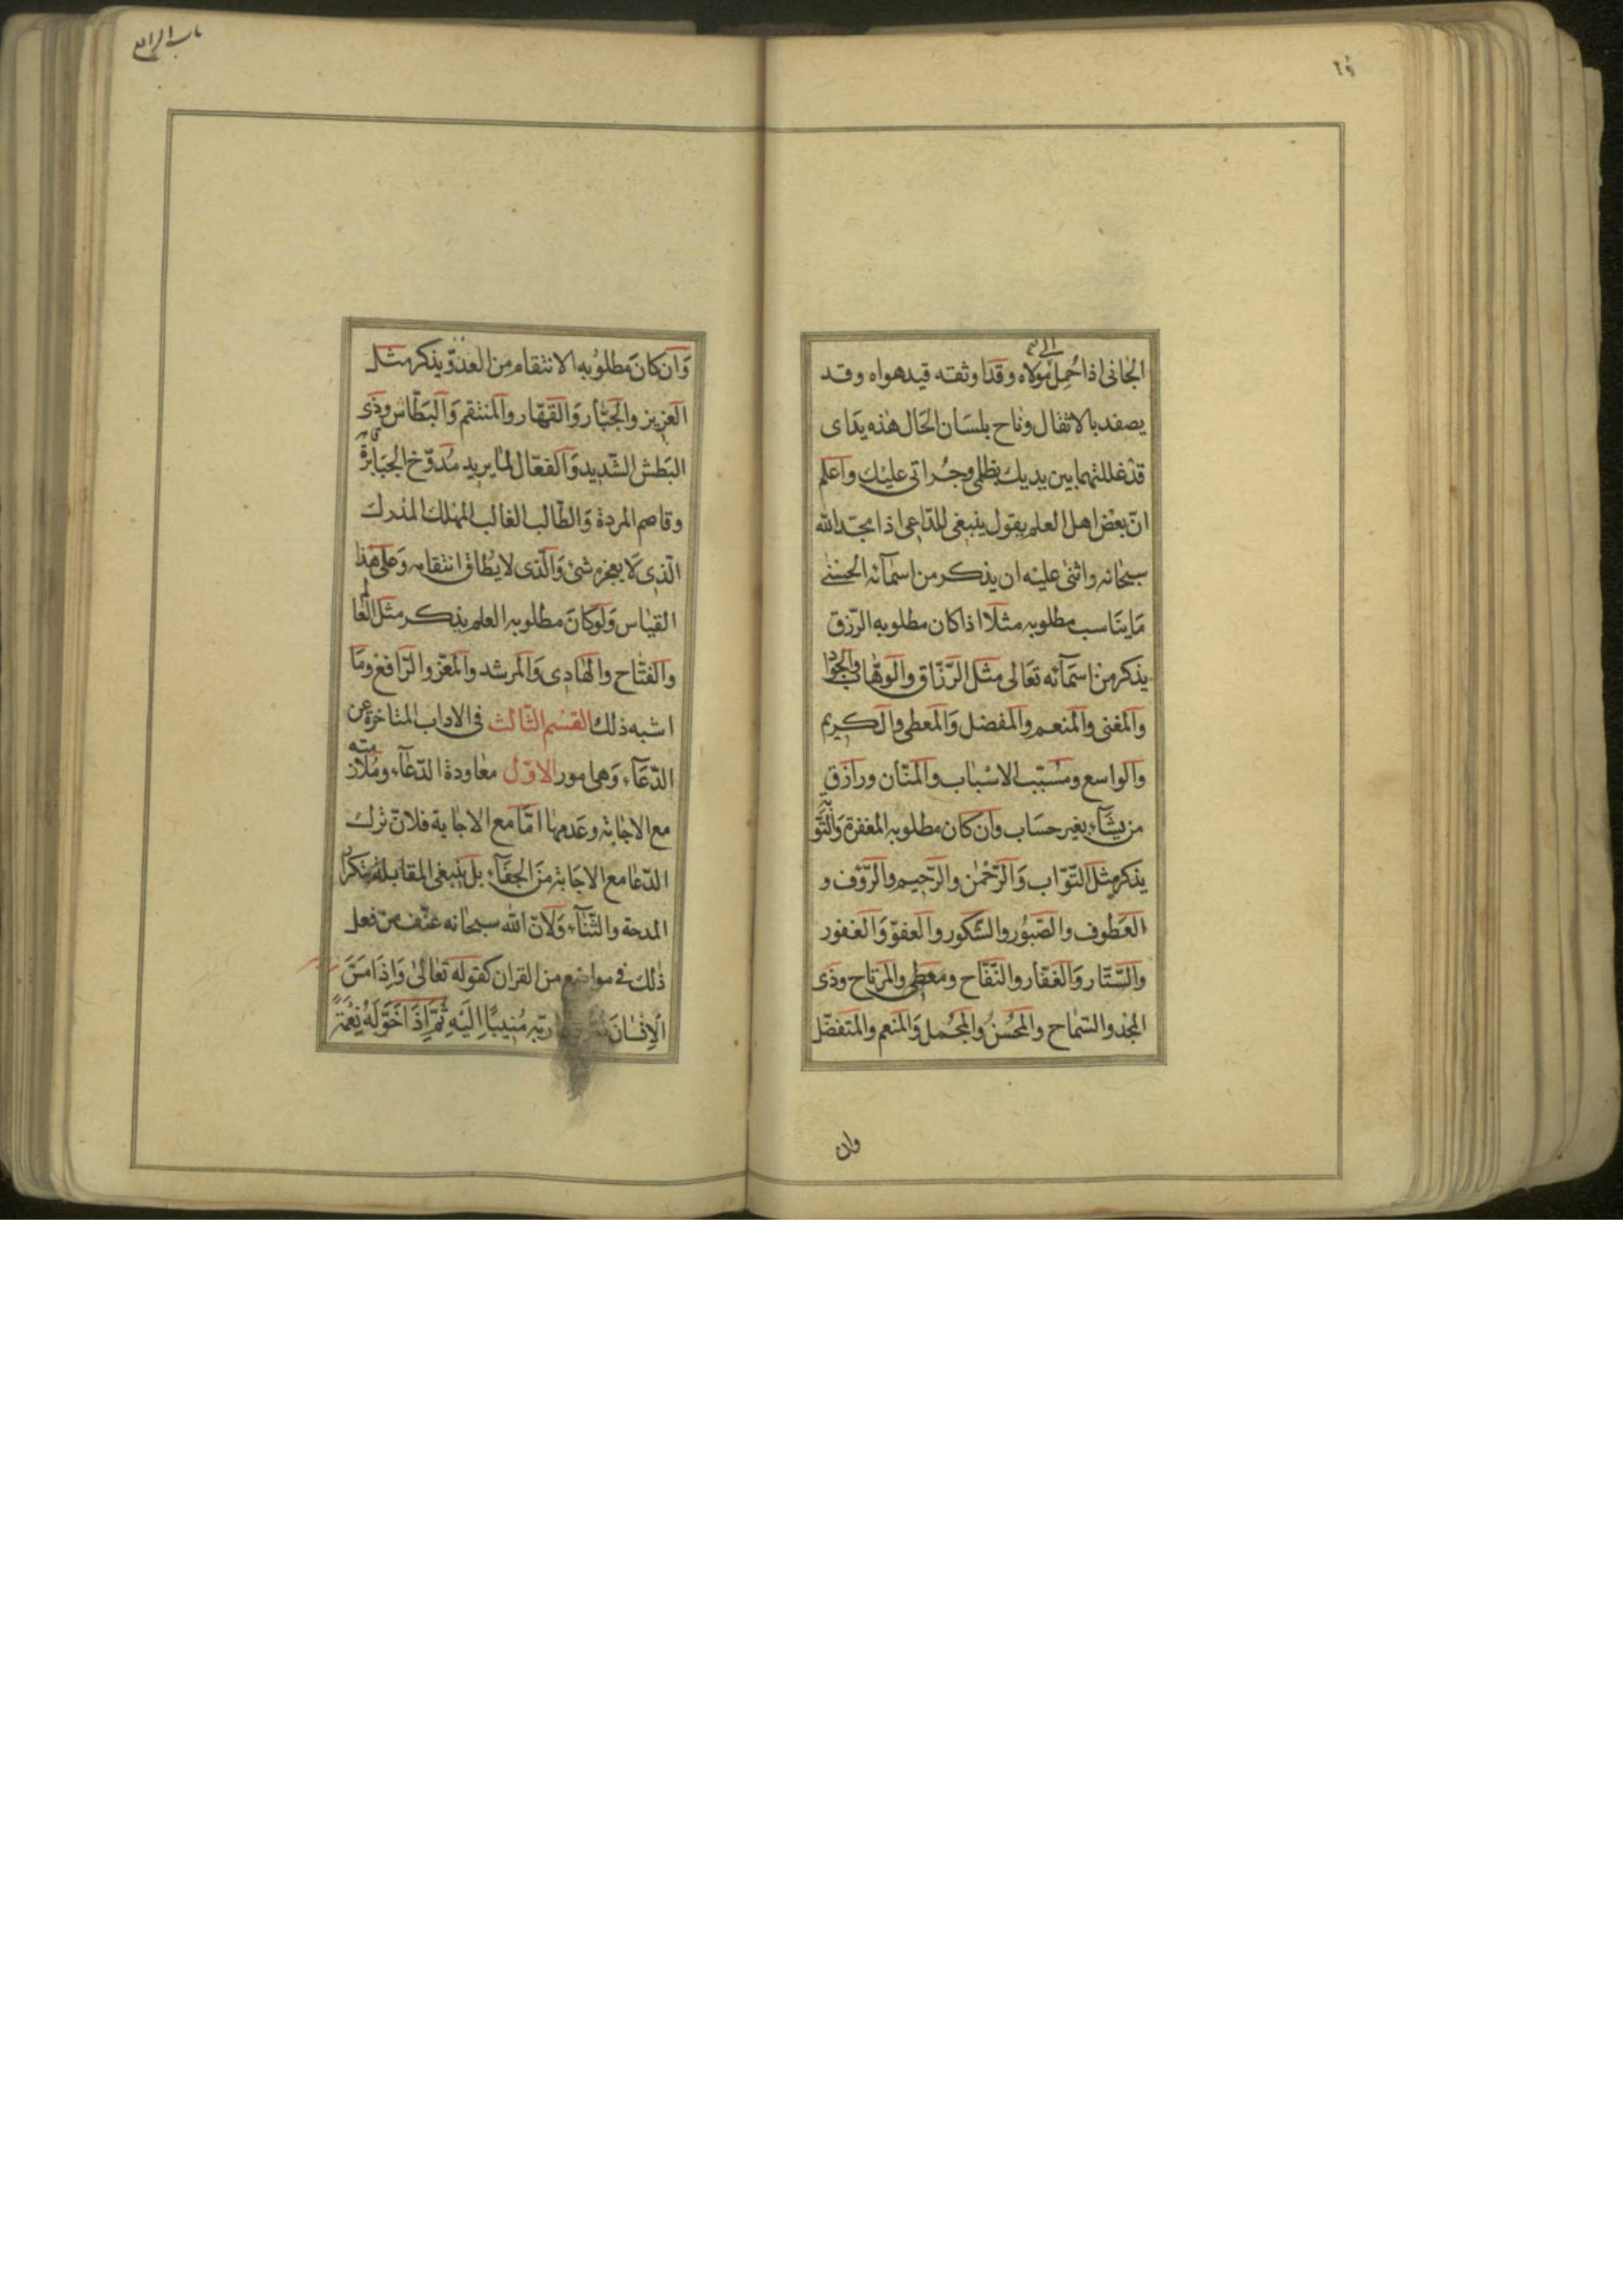 الجانى اذا حُمِلَ الى مَولاه وقد اوثقته قيد هواه وقد
يصفد بالاثقال وناح بلسَان الحَال هذه يَدَاى
قد غللتهما بين يديك بظلمى وجُراتى عليك واعلم
انّ بعض اهل العلم يقول ينبغى للدّاعى اذا مجّد الله
سبحانه واثنى عليه ان يذكر من اسمآئه الحسنى
مَا يناسب مطلوبه مثلا اذا كان مطلوبه الرّزق
يذكر من اسمَآئه تعَالى مثل الرّزّاق والوهّاب والجواد
والمغنى والمنعم والمفضل والمعطى والكريم
والواسع ومسبّب الاسْباب والمنّان ورازق
من يشآء بغير حسَاب وان كان مطلوبه المغفرة والتّوبة
يذكر مثل التّوّاب وَالرّحمٰن والرّحيم والرّؤف و
العَطوف والصّبُور والشّكور والعفوّ وَالغفور
والسّتّار وَالغفّار والنّفّاح ومعطى والمرتاح وذى
المجد والسّماح والمحسن والمجمل وَالمنعم والمتفضّل
وان
باب الرابع
وَان كانَ مطلوبه الانتقام من العدوّ يذكر مثل
العَزيز والجبّار وَالقهّار والمنتقم وَالبَطّاش وذى
البَطش الشّديد وَالفعّال لما يريد مُدوّخ الجبَابرة
وقاصم المردة وَالطّالب الغالب المهلك المدرك
الّذى لَا يعجزه شئ وَالّذى لا يطاق انتقامه وَعلى هذا
القيٰاس وَلو كانَ مطلوبه العلم يذكر مثل العالم
والفتّاح والهَادى وَالمرشد والمعزّ والرّافع ومَا
اشبه ذلك القسْم الثّالث فى الاداب المتاخرة عن
الدّعَآء وَهى امور الاوّل معاودة الدّعآء وملازمته
مع الاجٰابة وعَدمها امّا مع الاجابة فلانّ ترك
الدّعا مع الاجَابة منَ الجفَآء بل ينبغى المقابلة بتكرار
المدحة والثّنآء وَلانّ الله سبحانه عنّف من فعل
ذلك فى مواضع من القران كقوله تعٰالى وَاِذَا مَسَّ
الْاِنْسَانَ ربّه مُنيبًا اِلَيْهِ ثُمَّ اِذَا خَوَّلَهُ نِعْمَةً